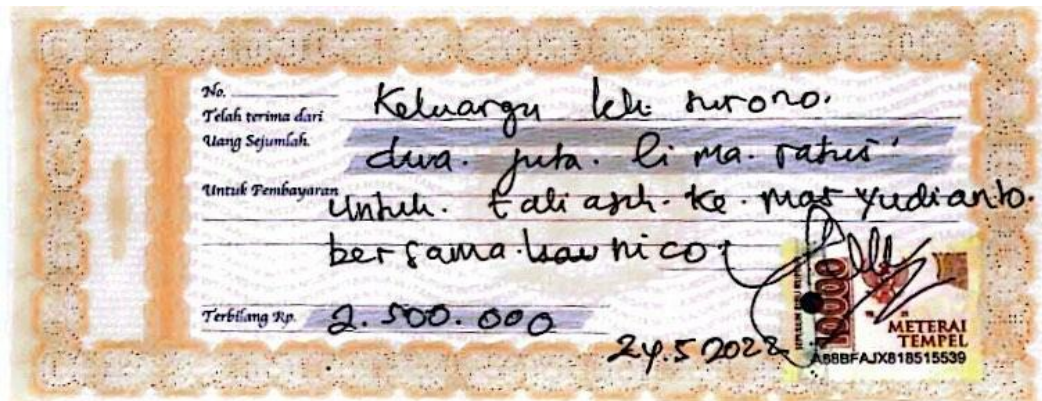 No.
Telah terima dari Keluarga leh surono.
Uang Sejumlah. dua. juta. lima. ratus
Untuk Pembayaran untuk. tali asih. ke. mas yudianto.
bersama nico
Terbilang Rp. 2.500.000
24.5 2022
10000
METERAI
TEMPEL
A68BFAJX818515539